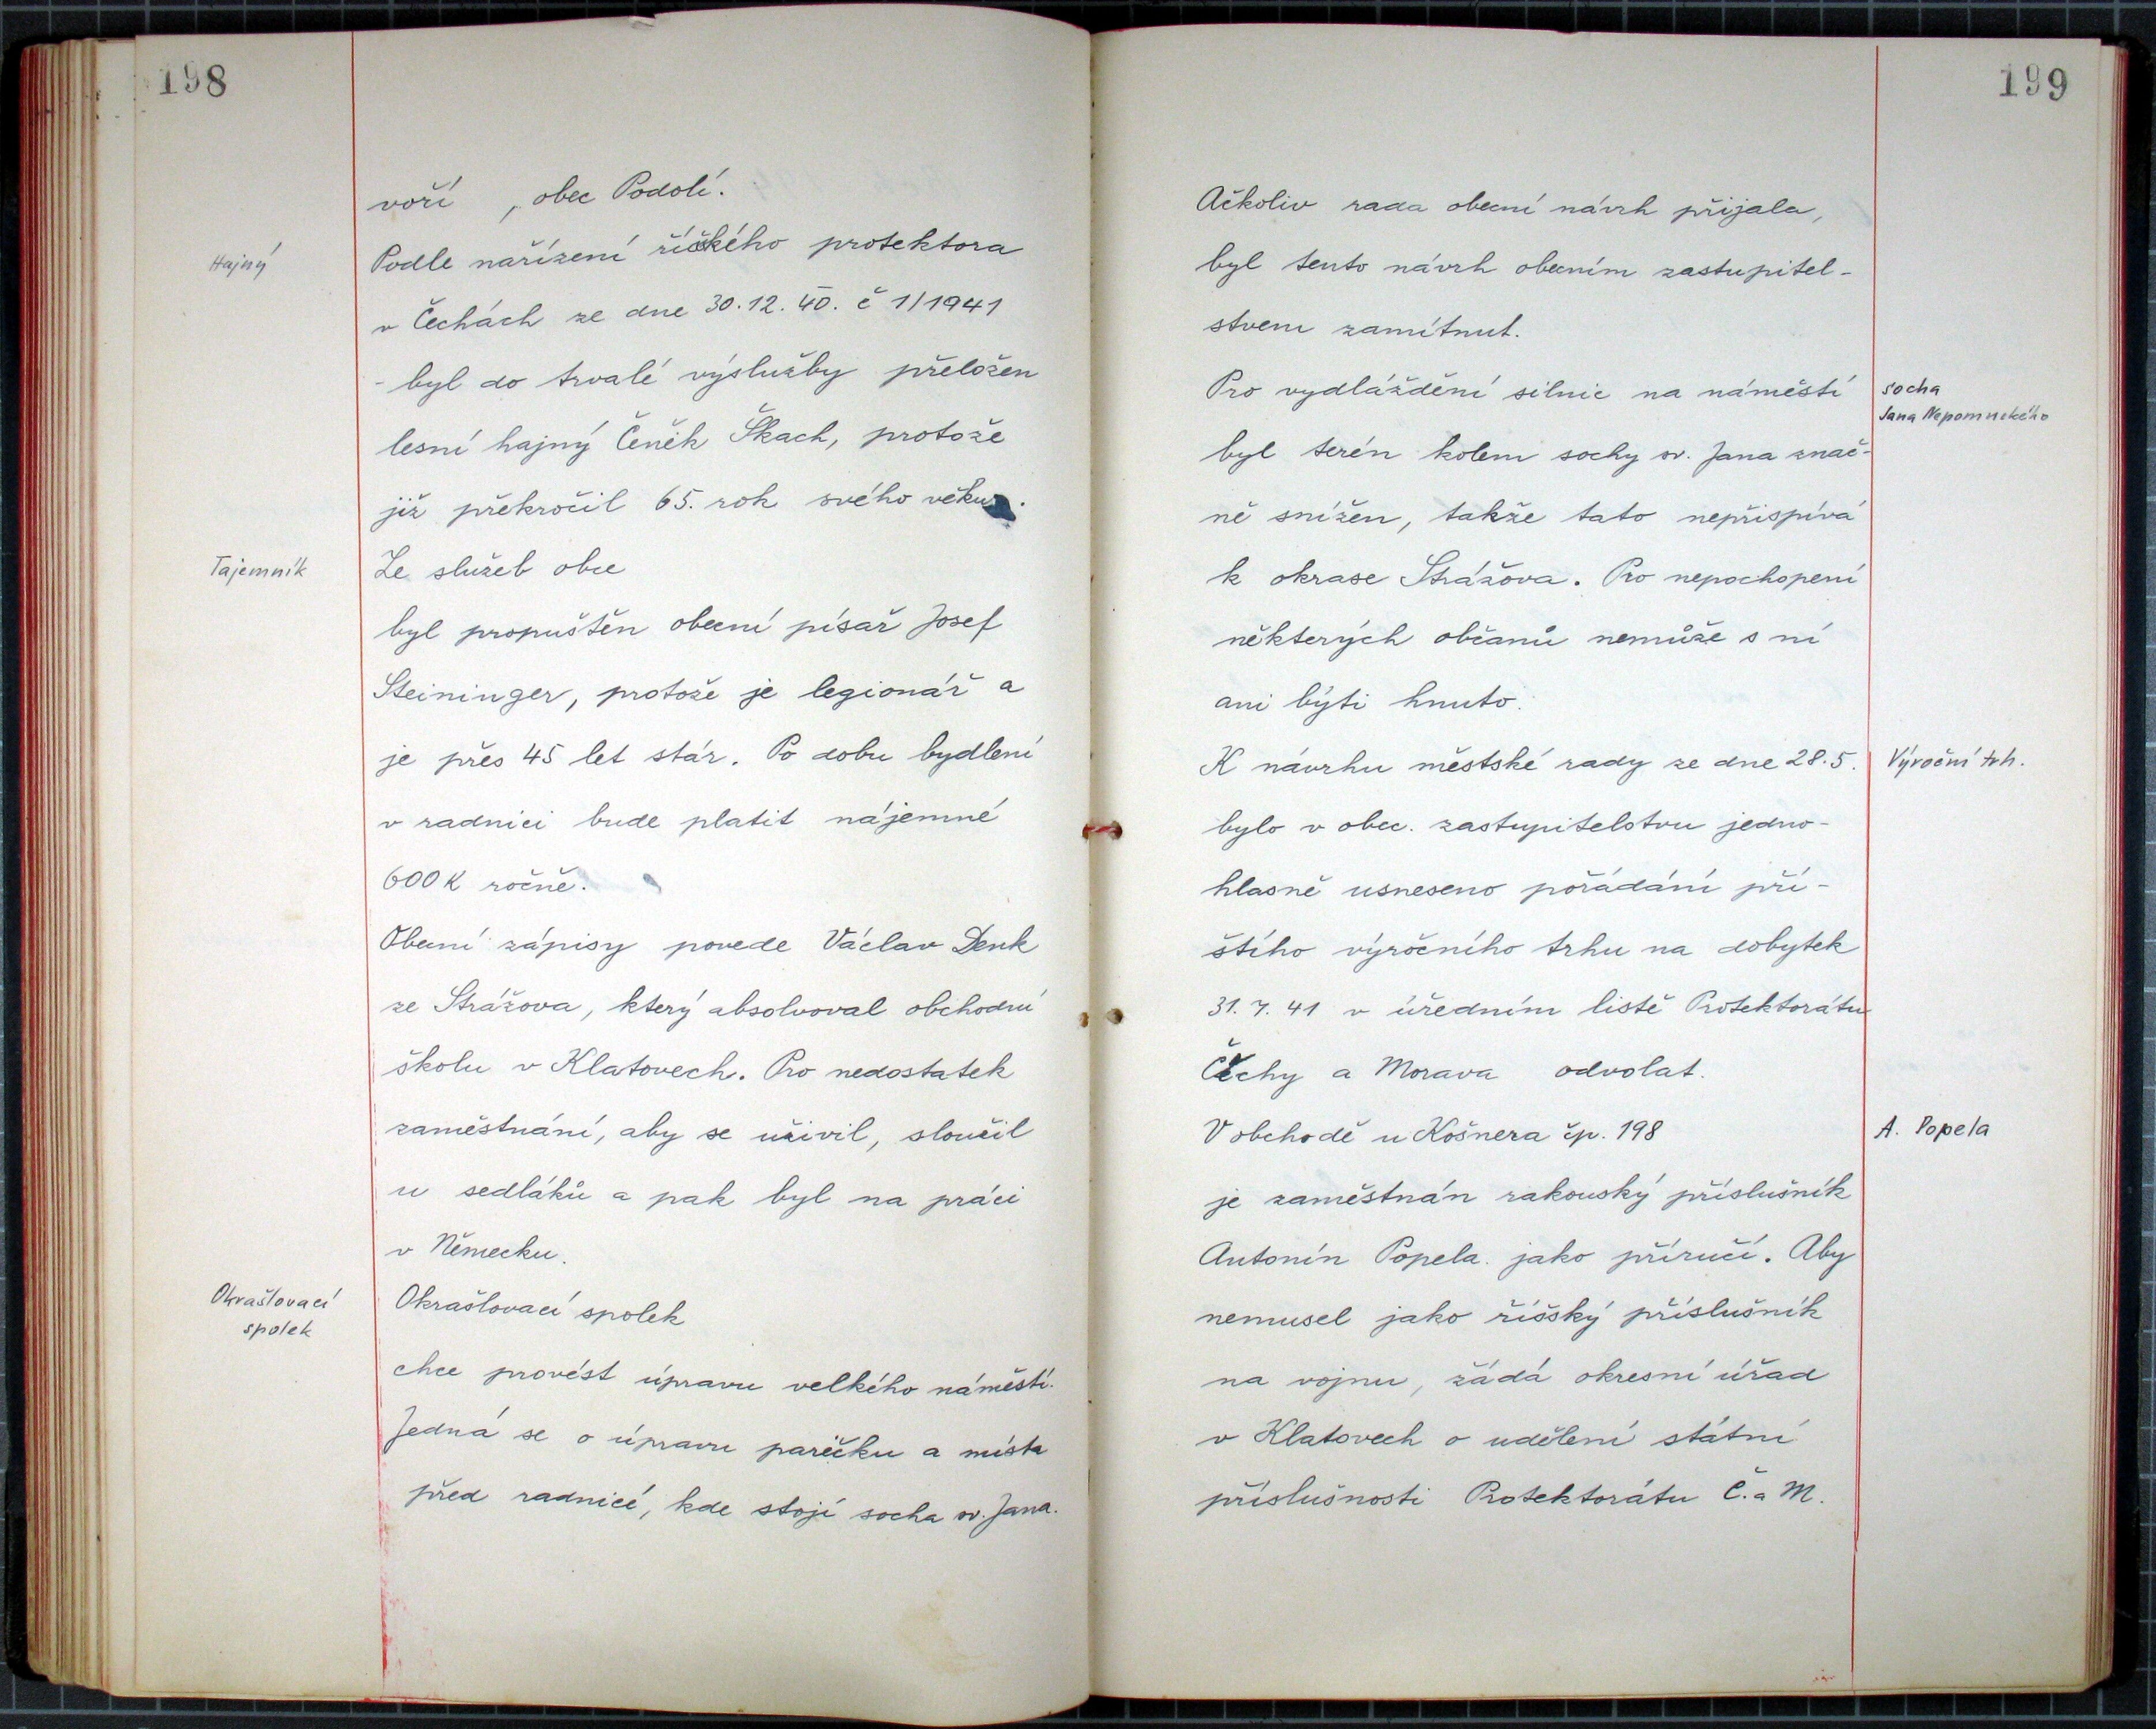 198
voří , obec Podolí.
Hajný
Podle nařízení říšského protektora
v Čechách ze dne 30.12.40. č 1/1941
- byl do trvalé výslužby přeložen
lesní hajný Čeněk Škach, protože
již překročil 65. rok svého věku.
Tajemník
Ze služeb obce
byl propuštěn obecní písař Josef
Steininger, protože je legionář a
je přes 45 let stár. Po dobu bydlení
v radnici bude platit nájemné
600 K ročně.
Obecní zápisy povede Václav Denk
ze Strážova, který absolvoval obchodní
školu v Klatovech. Pro nedostatek
zaměstnání, aby se uživil, sloužil
u sedláků a pak byl na práci
v Německu.
Okrašlovací
spolek
Okrašlovací spolek
chce provést úpravu velkého náměstí.
Jedná se o úpravu paréčku a místa
před radnicí, kde stojí socha sv. Jana.
199
Ačkoliv rada obecní návrh přijala,
byl tento návrh obecním zastupitel-
stvem zamítnut.
Pro vydláždění silnic na náměstí
socha
Jana Nepomuckého
byl terén kolem sochy sv. Jana znač-
ně snížen, takže tato nepřispívá
k okrase Strážova. Pro nepochopení
některých občanů nemůže s ní
ani býti hnuto.
K návrhu městské rady ze dne 28.5.
Výroční trh.
bylo v obec. zastupitelstvu jedno-
hlasně usneseno pořádání pří-
štího výročního trhu na dobytek
31. 7. 41 v úředním listě Protektorátu
Čechy a Morava odvolat.
V obchodě u Košnera čp. 198
A. Popela
je zaměstnán rakouský příslušník
Antonín Popela jako příručí. Aby
nemusel jako říšský příslušník
na vojnu, žádá okresní úřad
v Klatovech o udělení státní
příslušnosti Protektorátu Č. a M.